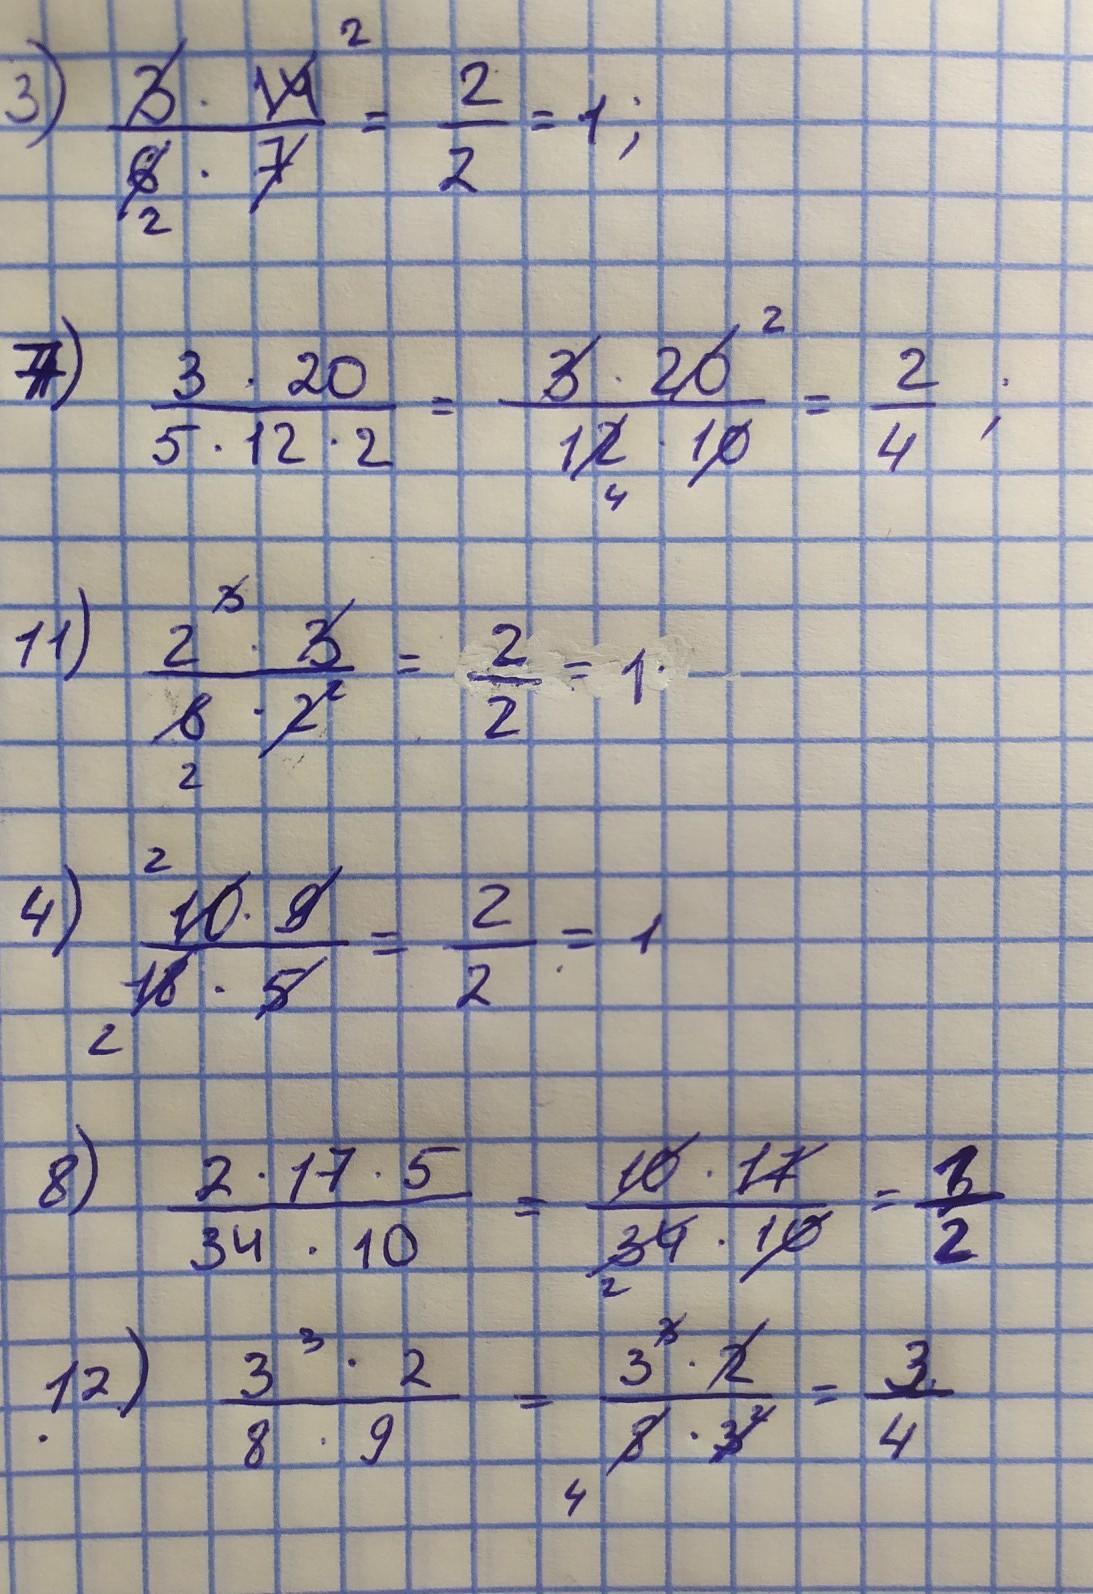 3) (3 · 14²)/(6₂ · 7) = 2/2 = 1;
7) (3 · 20)/(5 · 12 · 2) = (3 · 20²)/(12₄ · 10) = 2/4 ;
11) (2³ · 3)/(6₂ · 2²) = 2/2 = 1.
4) (²10 · 9)/(₂18 · 5) = 2/2 = 1
8) (2 · 17 · 5)/(34 · 10) = (10 · 17)/(34₂ · 10) = 1/2
12) (3³ · 2)/(8 · 9) = (3³ · 2)/(₄8 · 3²) = 3/4